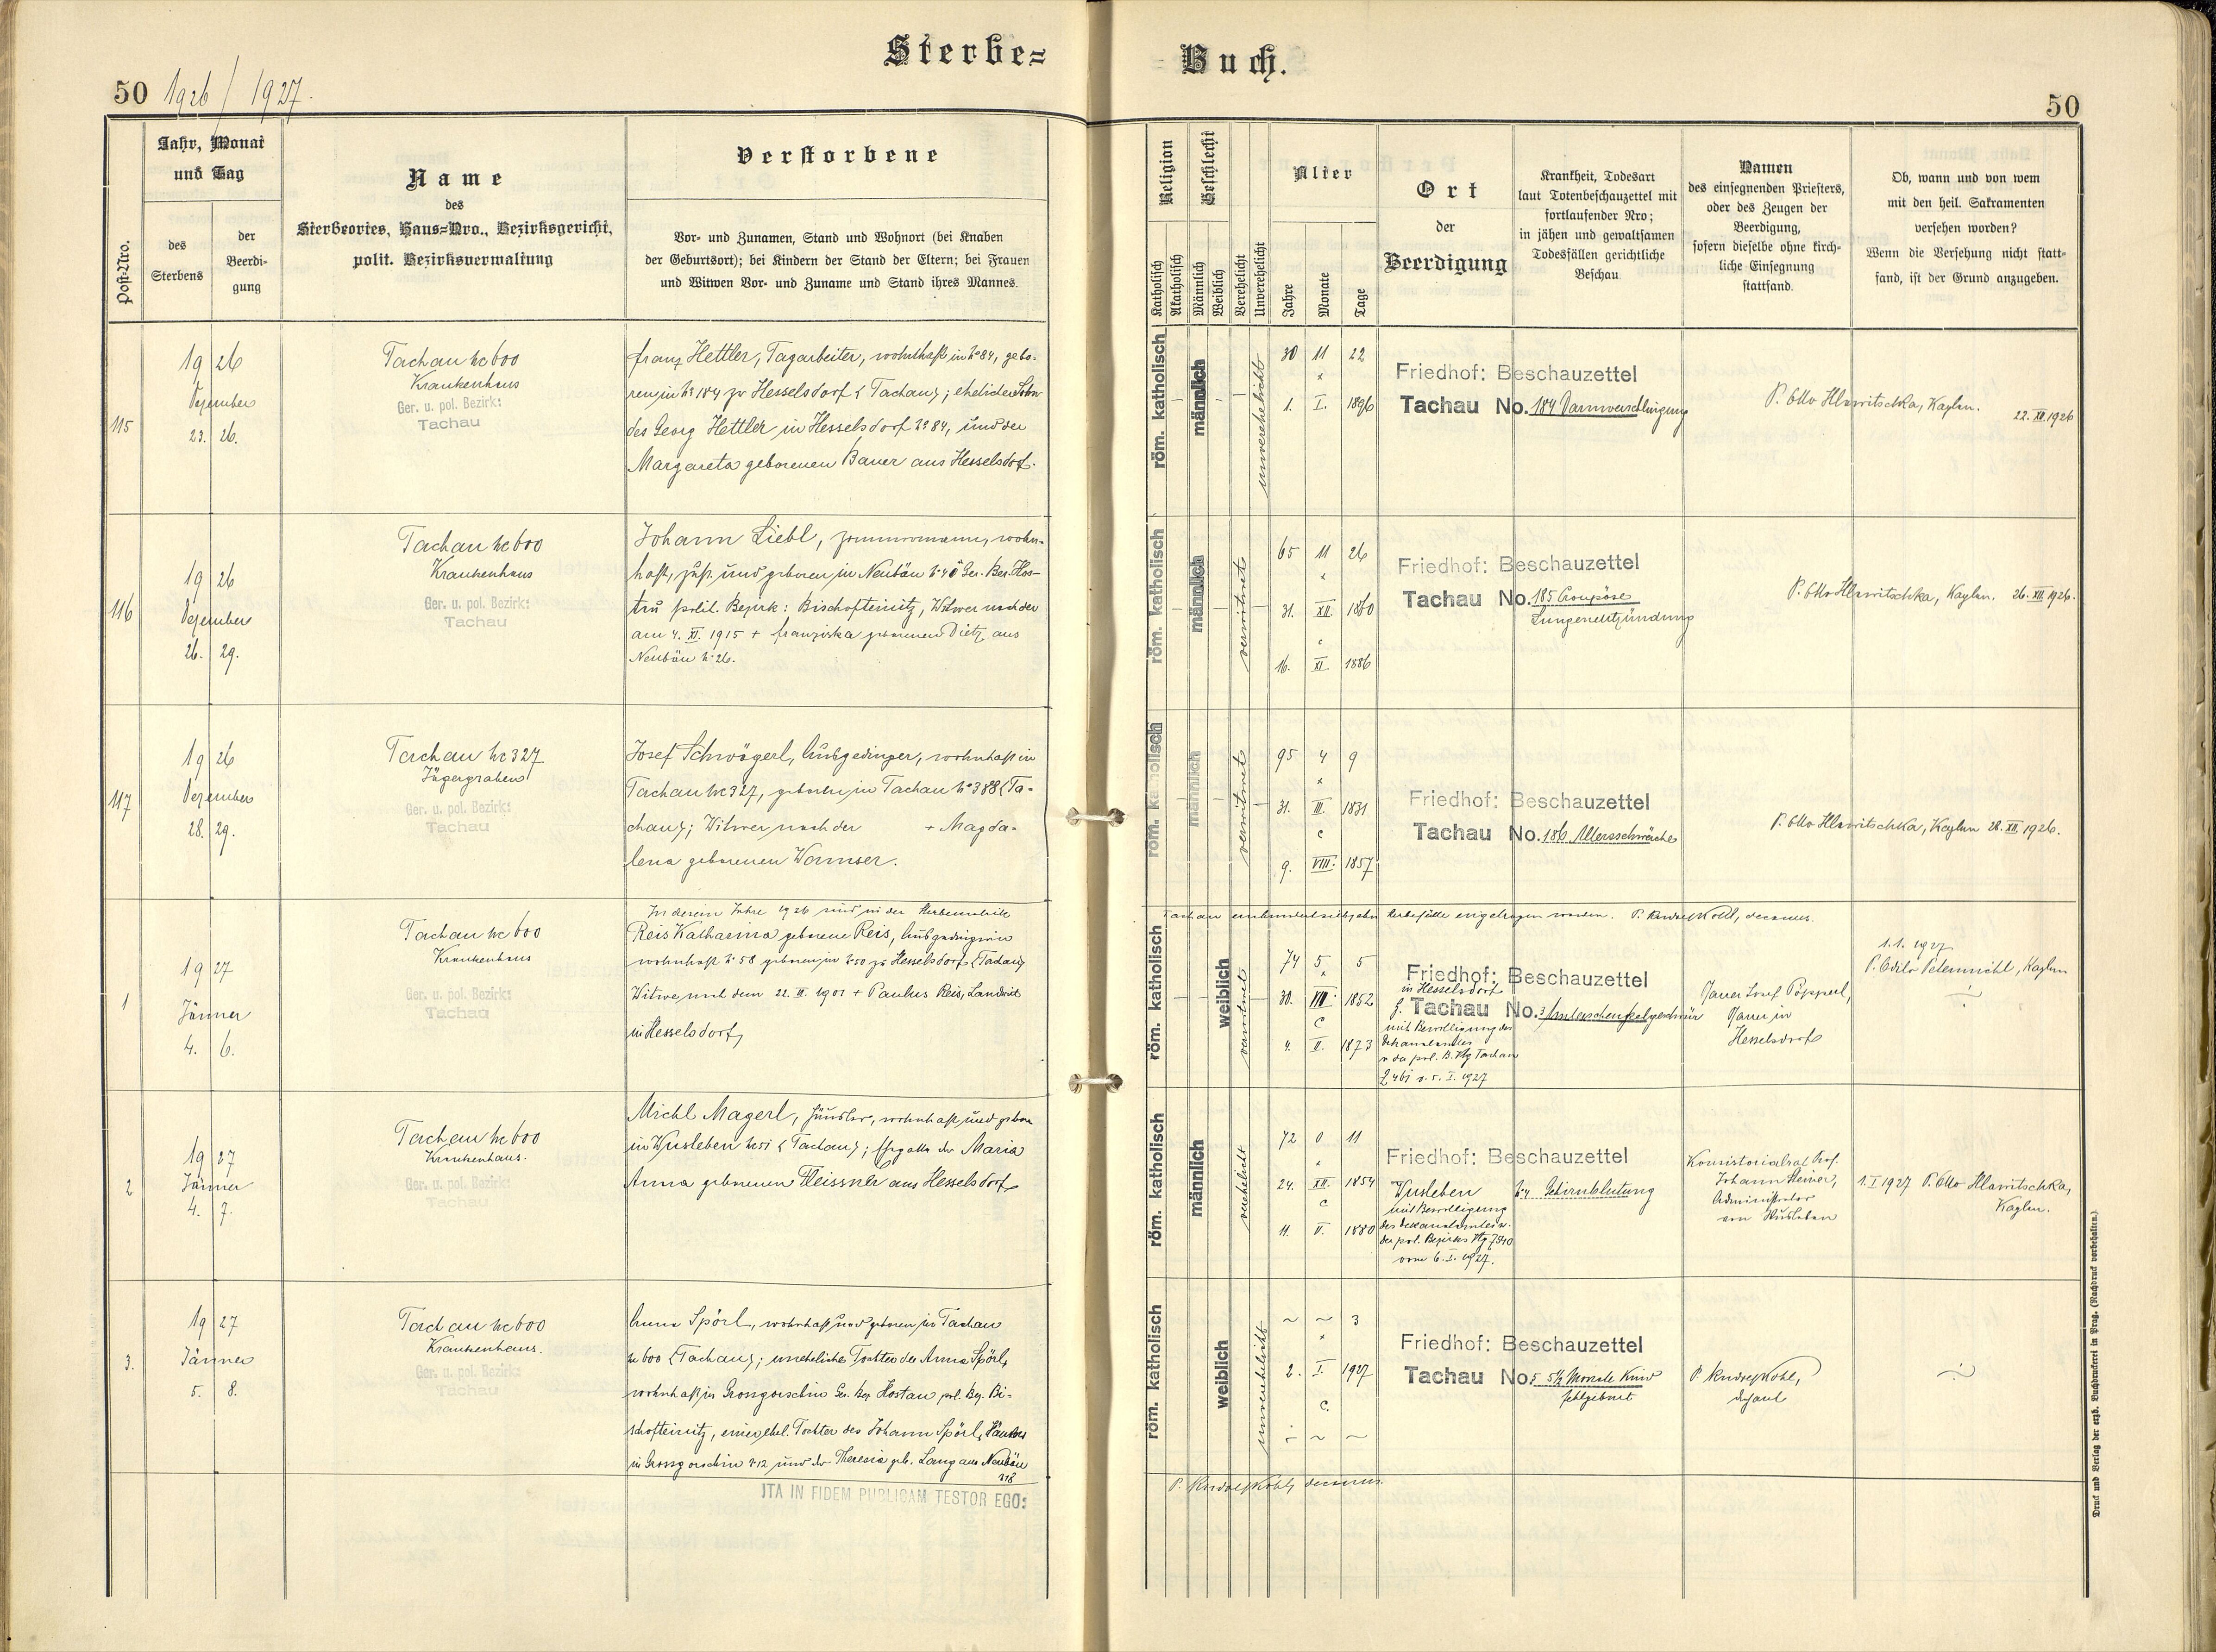 Sterbe=
Buch.
50 1926/1927.
50
Post-Nro.
Jahr, Monat
und Tag
des
Sterbens
der
Beerdi-
gung
Name
des
Sterbeortes, Haus=Nro., Bezirksgericht,
polit. Bezirksverwaltung
Verstorbene
Vor- und Zunamen, Stand und Wohnort (bei Knaben
der Geburtsort); bei Kindern der Stand der Eltern; bei Frauen
und Witwen Vor- und Zuname und Stand ihres Mannes.
Religion
Katholisch
Akatholisch
Geschlecht
Männlich
Weiblich
Verehelicht
Unverehelicht
Alter
Jahre
Monate
Tage
Ort
der
Beerdigung
Krankheit, Todesart
laut Totenbeschauzettel mit
fortlaufender Nro;
in jähen und gewaltsamen
Todesfällen gerichtliche
Beschau
Namen
des einsegnenden Priesters,
oder des Zeugen der
Beerdigung,
sofern dieselbe ohne kirch-
liche Einsegnung
stattfand.
Ob, wann und von wem
mit den heil. Sakramenten
versehen worden?
Wenn die Versehung nicht statt-
fand, ist der Grund anzugeben.
115
19 26
Dezember
23. 26.
Tachau No 600
Krankenhaus
Ger. u. pol. Bezirk:
Tachau
Franz Hettler, Tagarbeiter, wohnhaft in No 84, gebo-
ren in No 184 zu Hesselsdorf (Tachau); ehelicher Sohn
des Georg Hettler in Hesselsdorf No 84, und der
Margareta geborenen Bauer aus Hesselsdorf.
röm. katholisch
männlich
unverehelicht
30 11 22
*
1. I. 1896
Friedhof: Beschauzettel
Tachau No. 184 Darmverschlingung
P. Otto Hlawitschka, Kaplan.
22. XII. 1926
116
19 26
Dezember
26. 29.
Tachau No 600
Krankenhaus
Ger. u. pol. Bezirk:
Tachau
Johann Liebl, Zimmermann, wohn-
haft, zust. und geboren in Neubäu No 40 Ger. Bez. Hos-
tau polit. Bezirk: Bischofteinitz, Witwer nach der
am 4. XI. 1915 + Franziska geborenen Dietz aus
Neubäu No 26.
röm. katholisch
männlich
verwitwet
65 11 26
*
31. XII. 1860
c
16. XI. 1886
Friedhof: Beschauzettel
Tachau No. 185 Croupöse
Lungenentzündung
P. Otto Hlawitschka, Kaplan. 26. XII. 1926.
117
19 26
Dezember
28. 29.
Tachau No 327
Jägergraben
Ger. u. pol. Bezirk:
Tachau
Josef Schwögerl, Ausgedinger, wohnhaft in
Tachau No 327, geboren in Tachau No 388 (Ta-
chau); Witwer nach der + Magda-
lena geborenen Wormser.
röm. katholisch
männlich
verwitwet
95 4 9
*
31. III. 1831
c
9. VIII. 1857
Friedhof: Beschauzettel
Tachau No. 186 Altersschwäche
P. Otto Hlawitschka, Kaplan 28. XII. 1926.
In diesem Jahre 1926 sind in der Sterbematrik
Tachau einhundertsiebzehn Sterbefälle eingetragen worden. P. Rudolf Kohl, decanus.
1
19 27
Jänner
4. 6.
Tachau No 600
Krankenhaus
Ger. u. pol. Bezirk:
Tachau
Reis Katharina geborene Reis, Ausgedingerin
wohnhaft No 58 geboren in No 50 zu Hesselsdorf (Tachau)
Witwe nach dem 22. II. 1901 + Paulus Reis, Landwirt
in Hesselsdorf,
röm. katholisch
weiblich
verwitwet
74 5 5
*
30. VII. 1852
c
4. II. 1873
Friedhof: Beschauzettel
in Hesselsdorf
Tachau No. 3 Unterschenkelgeschwür
mit Bewilligung des
Dekanalamtes
v. der pol. B. Vlg Tachau
Z 461 v. 5. I. 1927
Josef Pöpperl,
in
Hesselsdorf
1. 1. 1927
P. Odilo Petermichl, Kaplan
÷
2
19 27
Jänner
4. 7.
Tachau No 600
Krankenhaus.
Ger. u. pol. Bezirk:
Tachau
Michl Magerl, Häusler, wohnhaft und geboren
in Wusleben No 51 (Tachau); Ehegatte der Maria
Anna geborenen Fleissner aus Hesselsdorf
röm. katholisch
männlich
verehelicht
72 0 11
*
24. XII. 1854
c
11. II. 1880
Friedhof: Beschauzettel
Wusleben No 4 Gehirnblutung
mit Bewilligung
des Dekanalamtes u.
der pol. Bezirks Vlg 7840
vom 6. I. 1927.
Konsistorialrat Prof.
Johann Steiner,
Administrator
von Wusleben
1. I 1927 P. Otto Hlawitschka,
Kaplan.
3.
19 27
Jänner
5. 8.
Tachau No 600
Krankenhaus.
Ger. u. pol. Bezirk:
Tachau
Anna Spörl, wohnhaft und geboren in Tachau
No 600 (Tachau); uneheliche Tochter der Anna Spörl,
wohnhaft in Grossgorschin Ger. Bez Hostau pol. Bez. Bi-
schofteinitz, einer ehel. Tochter des Johann Spörl, Häusler
in Grossgorschin No 12 und der Theresia geb. Lang aus Neubäu
No 18
röm. katholisch
weiblich
unverehelicht
~ ~ 3
*
2. I. 1927
c.
÷ ~ ~
Friedhof: Beschauzettel
Tachau No 5 5½ Monate Kind
Fehlgeburt
P. Rudolf Kohl,
Dechant
÷
ITA IN FIDEM PUBLICAM TESTOR EGO:
P. Rudolf Kohl, decanus.
Druck und Verlag der erzb. Buchdruckerei in Prag. (Nachdruck vorbehalten.)